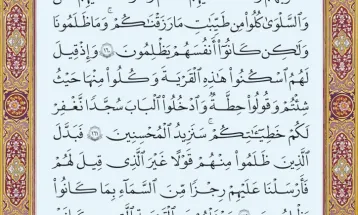 وَٱلسَّلْوَىٰ كُلُوا۟ مِن طَيِّبَٰتِ مَا رَزَقْنَٰكُمْ ۚ وَمَا ظَلَمُونَا
وَلَٰكِن كَانُوٓا۟ أَنفُسَهُمْ يَظْلِمُونَ ١٦٠ وَإِذْ قِيلَ
لَهُمُ ٱسْكُنُوا۟ هَٰذِهِ ٱلْقَرْيَةَ وَكُلُوا۟ مِنْهَا حَيْثُ
شِئْتُمْ وَقُولُوا۟ حِطَّةٌ وَٱدْخُلُوا۟ ٱلْبَابَ سُجَّدًا نَّغْفِرْ
لَكُمْ خَطِيٓـَٰٔتِكُمْ ۚ سَنَزِيدُ ٱلْمُحْسِنِينَ ١٦١ فَبَدَّلَ
ٱلَّذِينَ ظَلَمُوا۟ مِنْهُمْ قَوْلًا غَيْرَ ٱلَّذِى قِيلَ لَهُمْ
فَأَرْسَلْنَا عَلَيْهِمْ رِجْزًا مِّنَ ٱلسَّمَآءِ بِمَا كَانُوا۟